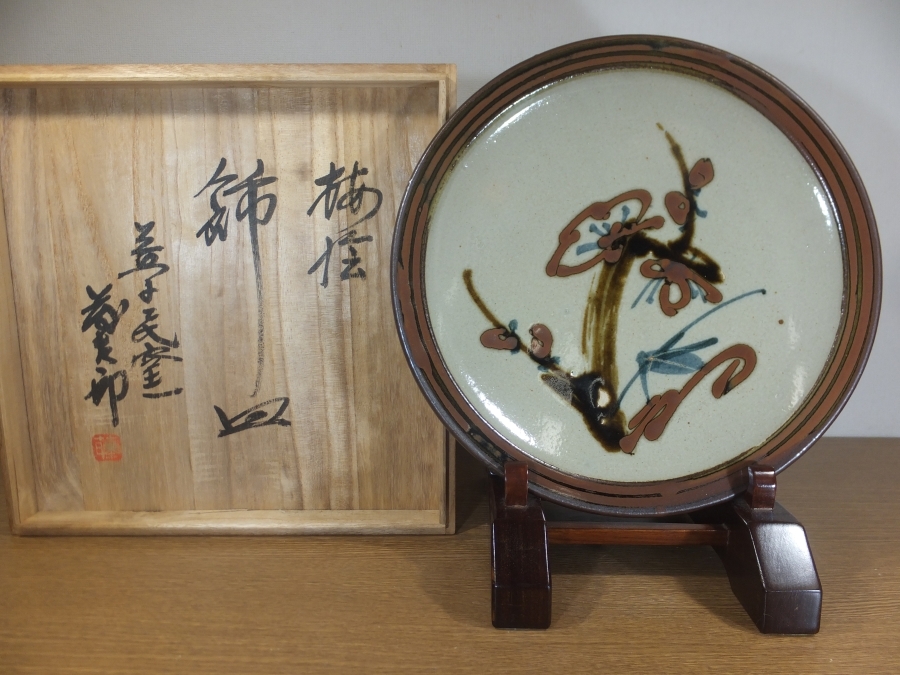 梅絵
飾皿
益子民窯